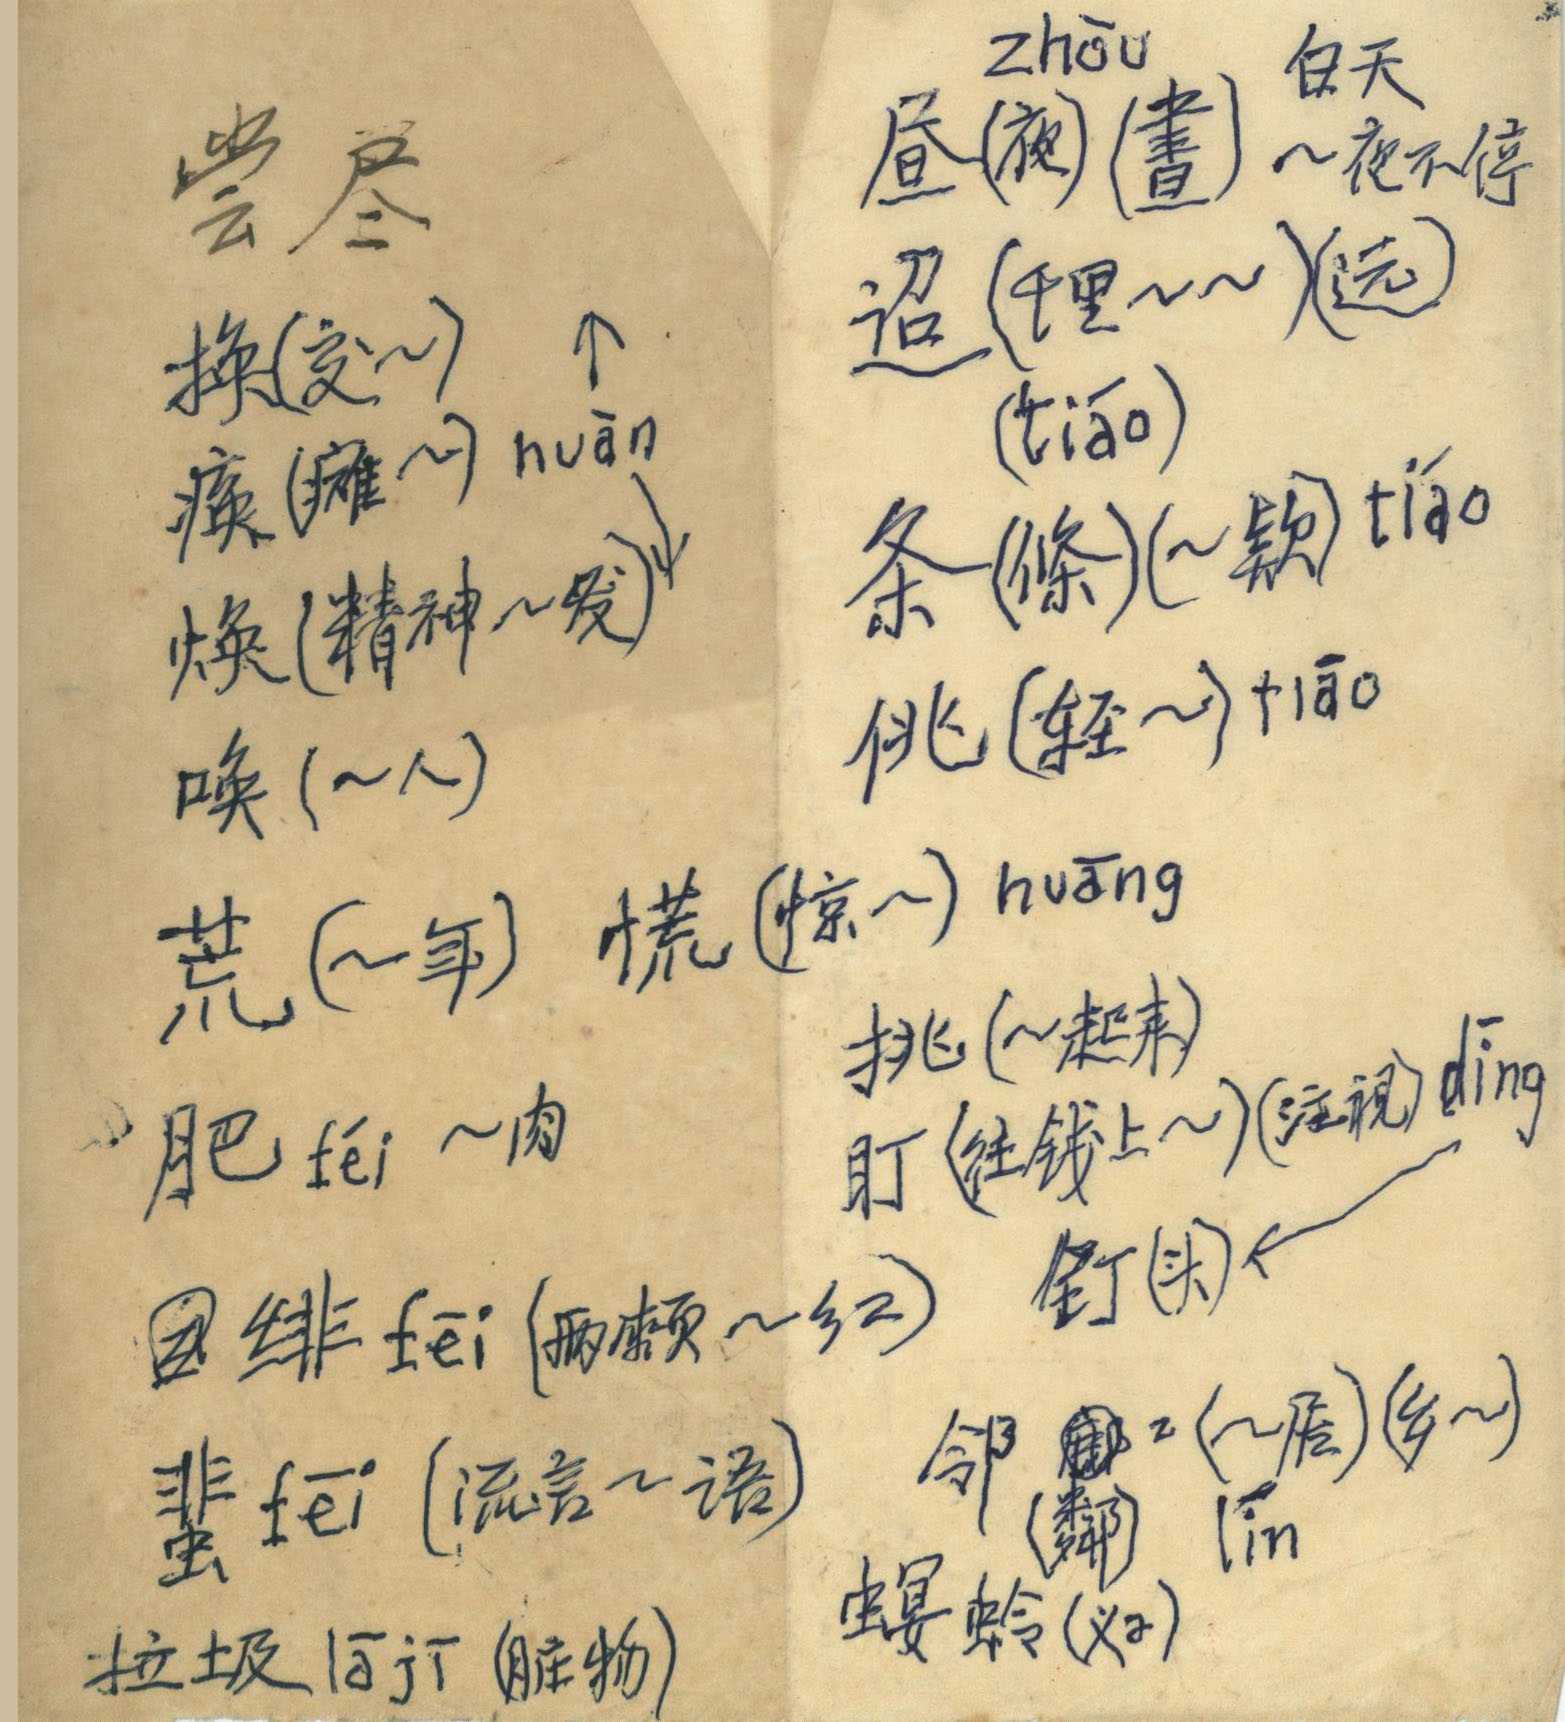 尝尽
换(交~) ↑
痪(瘫~) huān
焕(精神~发)
唤(~人)
荒(~年) 慌(惊~) huāng
肥 féi ~肉
绯 fēi (两颊~红)
蜚 fēi (流言~语)
垃圾 lā jī (脏物)
zhōu 白天
昼(夜)(晝) ~夜不停
迢(千里~~)(远)
(tiáo)
条(條)(~款) tiáo
佻(轻~) tiāo
挑(~起来)
盯(往钱上~)(注视) dīng
钉(头)
邻 = (~居)(乡~)
(鄰) lín
螟蛉(义子)